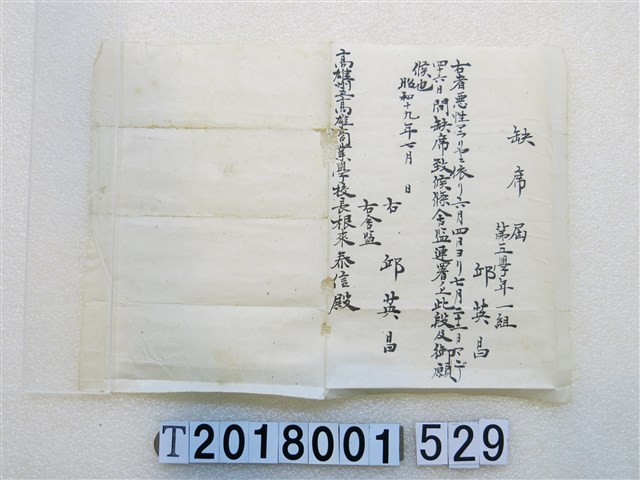 缺席届
第三學年一組
邱英昌
右者悪性マラリヤニ依リ六月四日ヨリ七月二十二日マデ
四十六日間缺席致候條舍監連署ノ上此段及御願
候也
昭和十九年七月 日
右 邱英昌
右舍監
高雄州立高雄商業學校長根來泰信殿
T2018001529